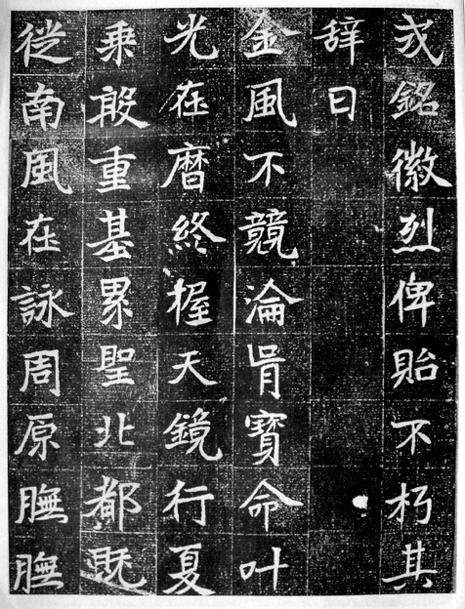 式銘徽烈俾貽不朽其
辞曰
金風不競淪胥寶命叶
光在暦終握天鏡行夏
乘殷重基累聖北都既
從南風在詠周原膴膴